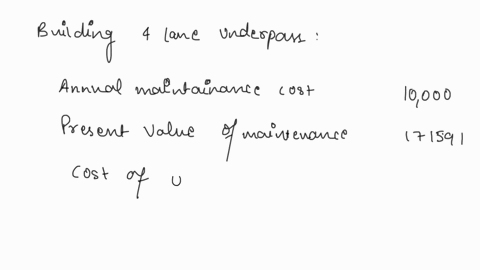 Building 4 lane underpass :
Annual maintainance cost 10,000
Present value of maintenance 171591
Cost of U